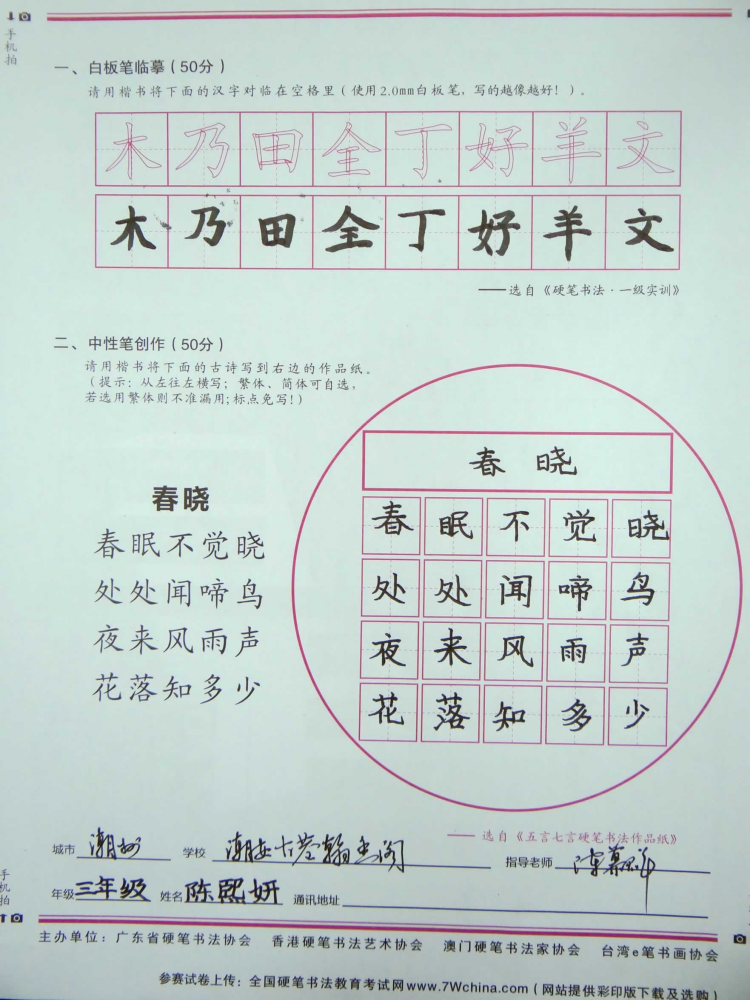 手机拍
一、白板笔临摹（50分）
请用楷书将下面的汉字对临在空格里（使用2.0mm白板笔，写的越像越好！）。
木乃田全丁好羊文
木乃田全丁好羊文
——选自《硬笔书法·一级实训》
二、中性笔创作（50分）
请用楷书将下面的古诗写到右边的作品纸。
（提示：从左往左横写；繁体、简体可自选，
若选用繁体则不准漏用;标点免写!）
春晓
春眠不觉晓
处处闻啼鸟
夜来风雨声
花落知多少
春晓
春眠不觉晓
处处闻啼鸟
夜来风雨声
花落知多少
——选自《五言七言硬笔书法作品纸》
城市 潮州 学校 潮安 翰 阁 指导老师 陈
年级 三年级 姓名 陈熙妍 通讯地址
手机拍
主办单位：广东省硬笔书法协会 香港硬笔书法艺术协会 澳门硬笔书法家协会 台湾e笔书画协会
参赛试卷上传：全国硬笔书法教育考试网www.7Wchina.com（网站提供彩印版下载及选购）